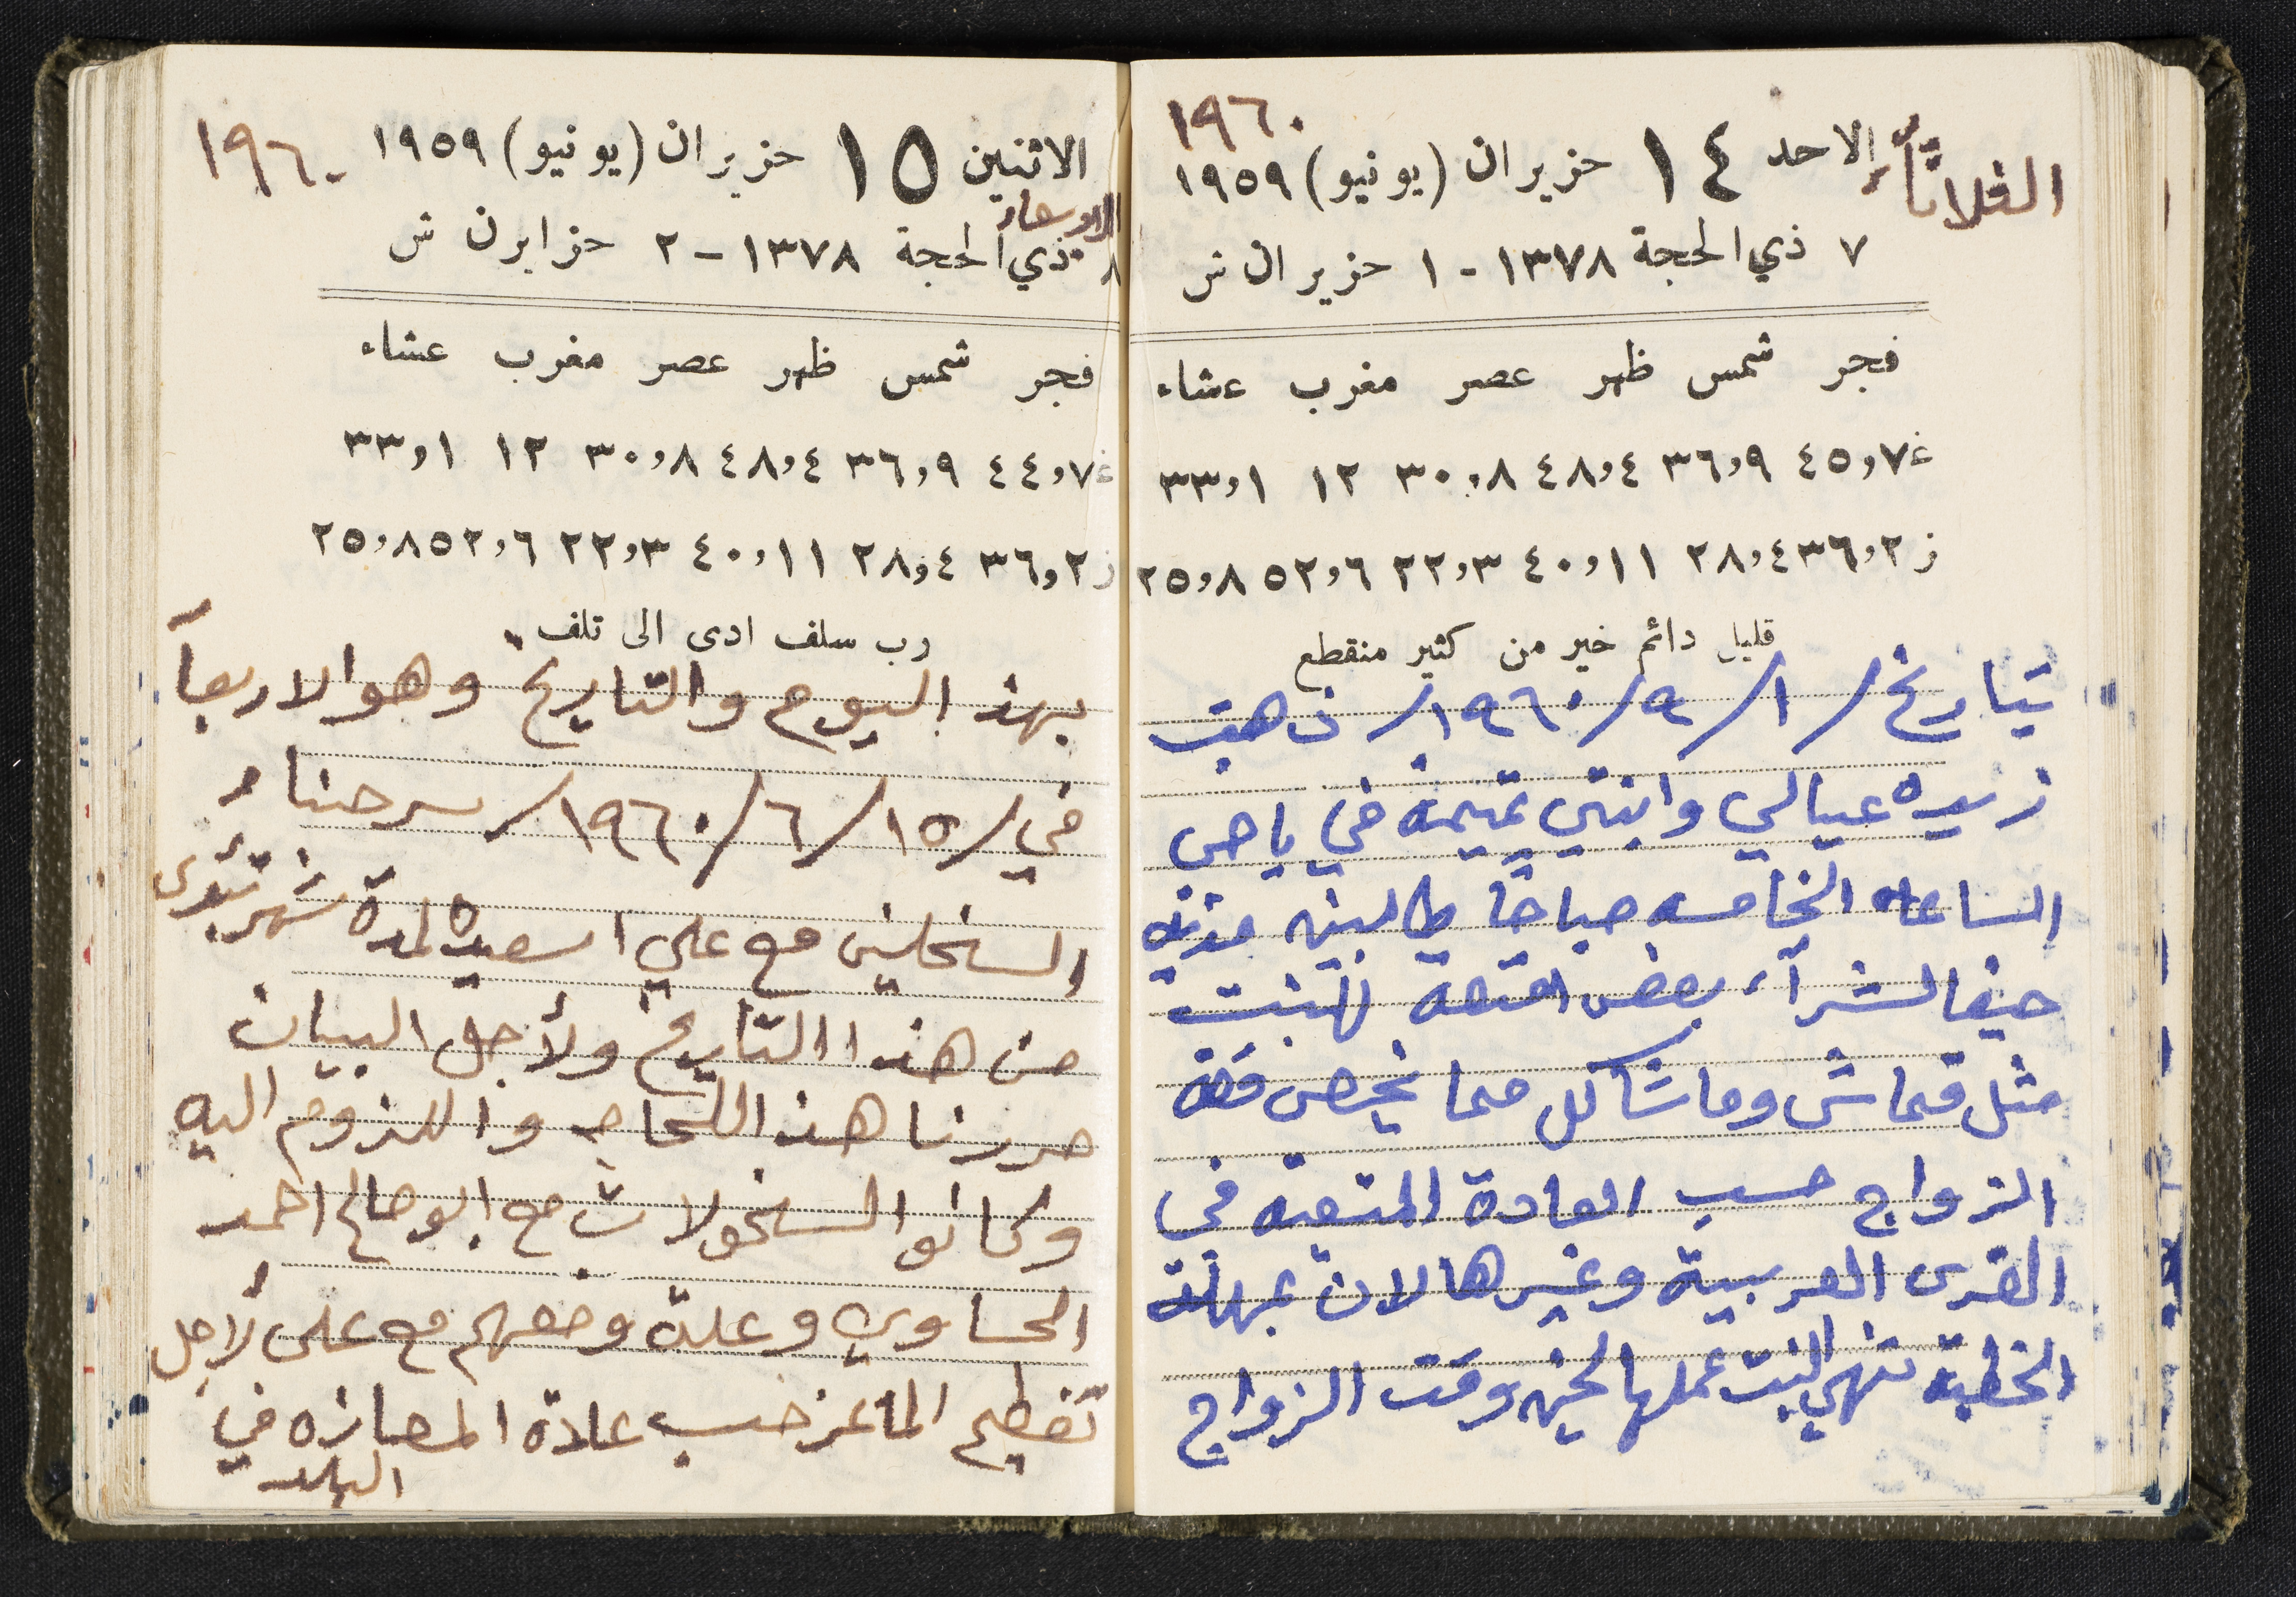 ١٩٦٠
الثلاثاء الاحد ١٤ حزيران (يونيو) ١٩٥٩
٧ ذي الحجة ١٣٧٨ - ١ حزيران ش
فجر شمس ظهر عصر مغرب عشاء
غ ٤٥,٧ ٣٦,٩ ٤٨,٤ ٣٠,٨ ١٢ ٣٣,١
ز ٣٦,٢ ٢٨,٤ ٤٠,١١ ٢٢,٣ ٥٢,٦ ٢٥,٨
قليل دائم خير من كثير منقطع
بتاريخ / ١ / ٩ / ١٩٦٠ / ذهبت
زيده عيالي وابنتي تميمه في باص
الساعه الخامسه صباحاً طالبينه مدينه
حيفا لشرآء بعض امتعة للبنت
مثل قماش وما شاكل مما يخص
الزواج حسب العادة المتبعه في
القرى العربية وغيرها لان بمهلة
الخطبه تنهي البنت عملها لحين وقت الزواج
الاثنين ١٥ حزيران (يونيو) ١٩٥٩ ١٩٦٠
الاربعاء
٨ ذي الحجة ١٣٧٨ - ٢ حزايرن ش
فجر شمس ظهر عصر مغرب عشاء
غ ٤٤,٧ ٣٦,٩ ٤٨,٤ ٣٠,٨ ١٢ ٣٣,١
ز ٣٦,٢ ٢٨,٤ ٤٠,١١ ٢٢,٣ ٥٢,٦ ٢٥,٨
رب سلف ادى الى تلف
بهذ اليوم والتاريخ وهو الاربعآ
في / ١٥ / ٦ / ١٩٦٠ / سرحنا
السخلين مع علي اسعيد لمدة شهر
من هذا التاريخ ولأجل البيان
حررنا هذ اللحاجه واللزوم اليه
وكانو السخولات مع ابو صالح احمد
الحساوي وعلة وضعهم مع على لأجل
تفطيم الماعز حسب عادة المعازه في
البلد